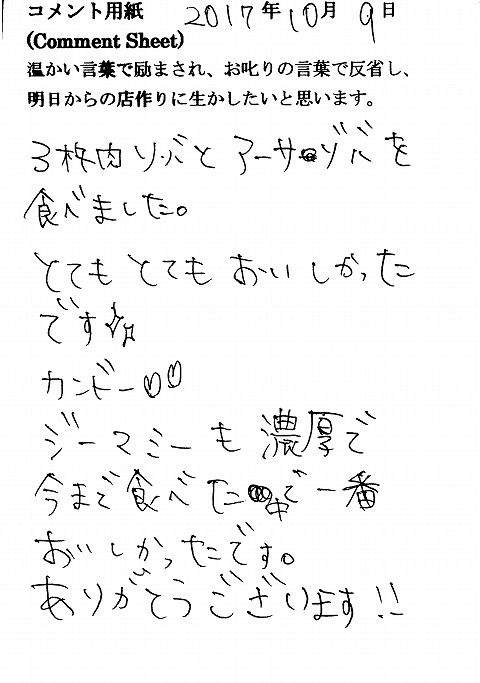 コメント用紙 2017年10月9日
(Comment Sheet)
温かい言葉で励まされ、お叱りの言葉で反省し、
明日からの店作りに生かしたいと思います。
3枚肉ソバとアーサゾバを
食べました。
とてもとてもおいしかった
です✨
カンドー♡♡
ジーマミーも濃厚で
今まで食べた中で一番
おいしかったです。
ありがとうございます!!